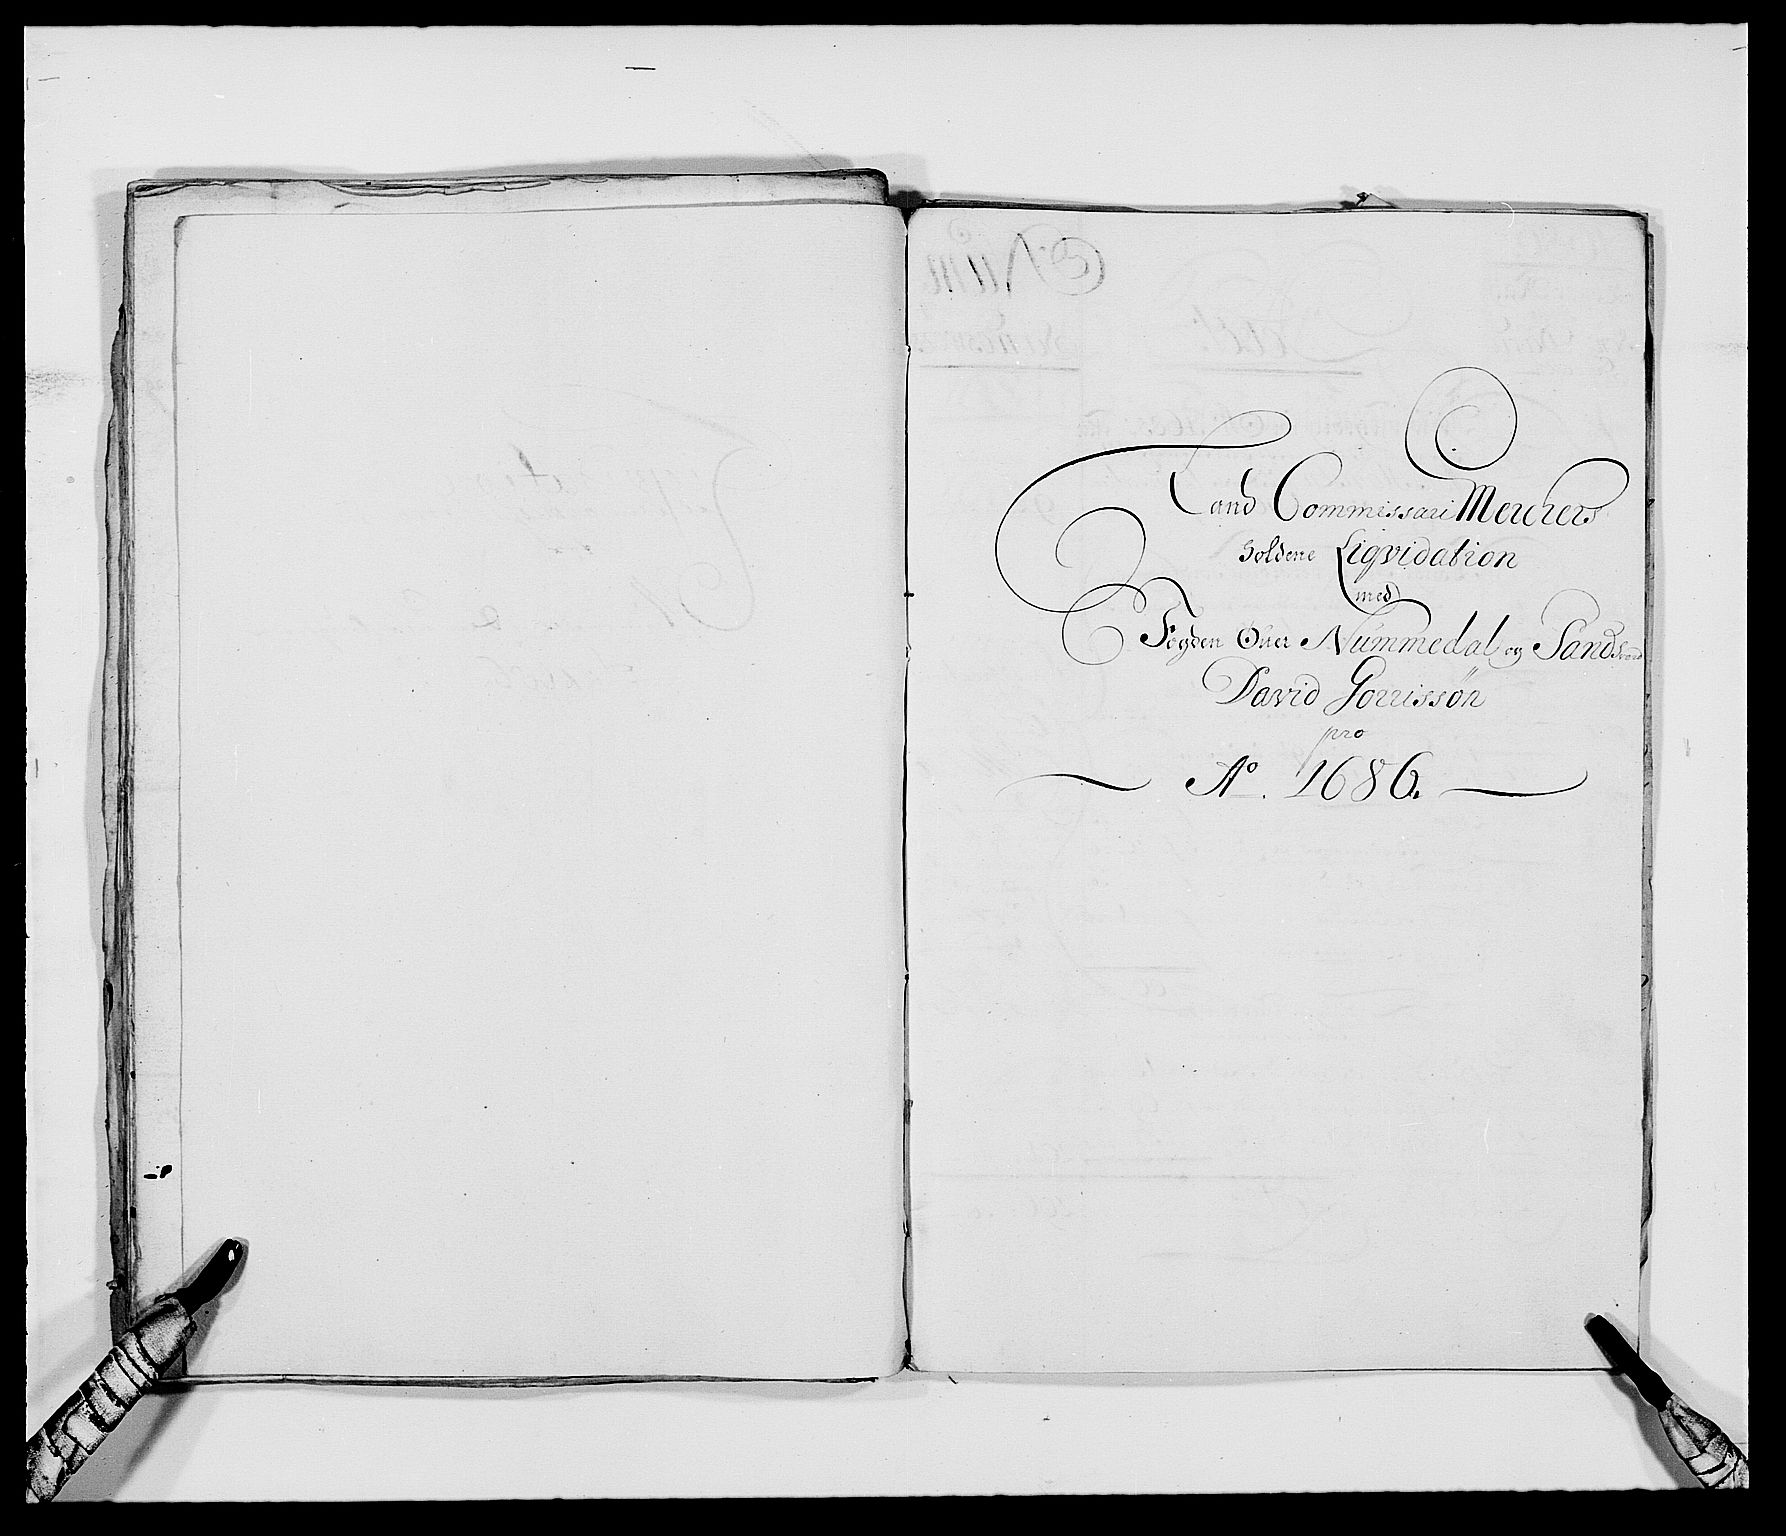 Land Commissari Meurers
holdene Liqvidation
med
Fogden Ofuer Nummedal og Sandsverd
David Gorrissøn
pro
Ao. 1686.